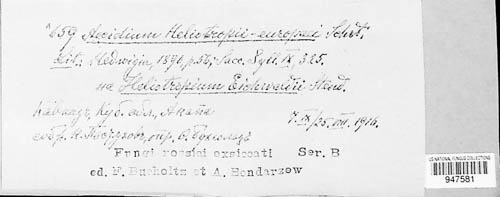 659 Aecidium Heliotropii-europaei Schrt.
Lit.: Hedwigia, 1890, p. 52; Sacc. Syll. IX, 325.
на Heliotropium Eichwaldii Steud.
Кавказ, Куб. обл., Анапа
7. IX/25. VIII. 1914.
собр. опр.
Fungi rossici exsiccati Ser. B
ed. F. Bucholtz et A. Bondarzew
US NATIONAL FUNGUS COLLECTIONS
947581